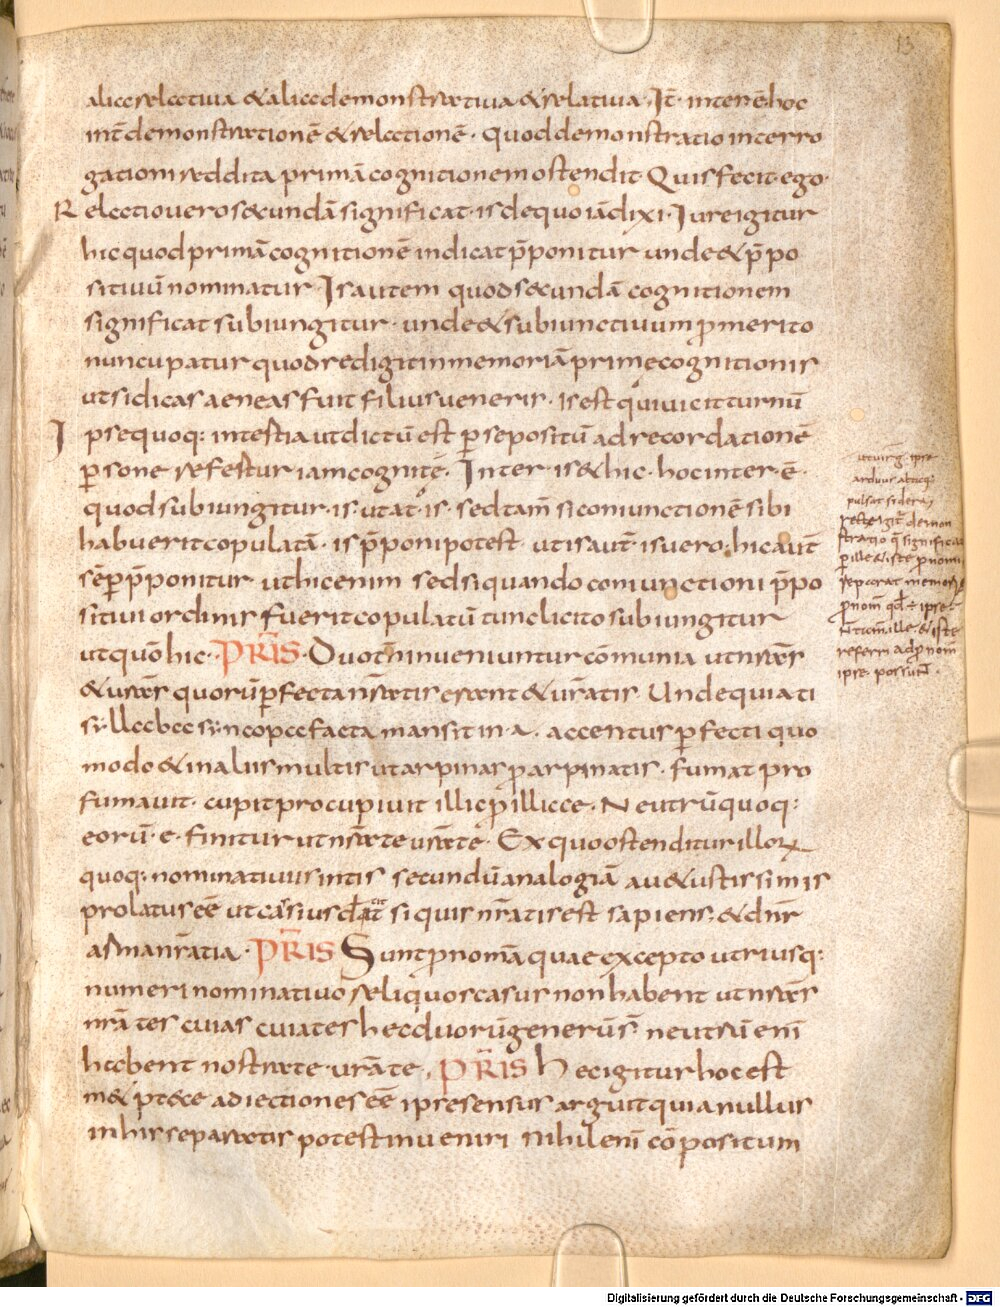 13
aliae relectiua & aliae demonstratiua & relatiua. It̄ interē hoc
int̄ demonstrationē & relectionē. quod demonstratio interro
gationi reddita primā cognitionem ostendit. Quis fecit. ego.
Relectio uero secundā significat. is de quo iā dixi. Iure igitur
hic quod primā cognitionē indicat p̄ponitur unde & p̄po
sitiuū nominatur. Is autem quod secundā cognitionem
significat subiungitur. unde & subiunctiuum ꝓ merito
nuncupatur quod redigit in memoriā prime cognitionis
ut si dicas aeneas fuit filius ueneris. is est qui uicit turnū
Ipse quoq: int̄ estia ut dictū est ꝑ se positū ad recordationē
ꝑsone refertur iam cognitę. Inter. is & hic. hoc inter.ē.
quod subiungitur. is ut at is. sed tam̄ si coniunctionē sibi
habuerit copulatā. is p̄poni potest. ut is aut̄. is uero. hic aut̄
sēꝑ p̄ponitur ut hic enim sed si quando coniunctioni p̄po
sitiui ordinis fuerit copulatū tunc licito subiungitur
ut quō hic. P̄RIS. Duo tn̄ inueniuntur cōmunia ut nr̄as
& uras quorū ꝑfecta nr̄atis erant & ur̄atis. Unde quia ti
syllaba syncopa facta mansit in .a. accentus ꝑfecti quo
modo & in aliis multis ut arpinas ꝓ arpinatis. fumat pro
fumauit. cupit pro cupiuit illic ꝓ illicce. Neutrū quoq:
eorū .e. finitur ut nr̄ate urate. Ex quo ostenditur illoꝝ
quoq: nominatiuus in tis secundū analogiā a uetustissimis
prolatus eē̄ ut cassius siquis nr̄atis est sapiens. & dn̄r
arma nr̄atia. P̄RIS Sunt ꝓnomā quae excepto utriusq:
numeri nominatiuo reliquos casus non habent ut nr̄as
nr̄ates cuias cuiates hec duorū generūs̄ neutrū enī
habent nostrate. ur̄ate. P̄RIS Hec igitur hoc est
m& pt&ce adiectiones eē̄ ipse sensus arguit quia nullus
in his separatis potest inueniri nihil enī cōpositum
ut uirḡ. ipse
arduus altaq:
pulsat sidera.
demon
stratio q̄ significat
ꝑ ille & iste ꝓnom̄
reparat memoriā
ꝓnom̄ qd ÷ ipse
N̄ tam̄ ille & iste
referri ad ꝓnom̄
ipse. possunt.
Digitalisierung gefördert durch die Deutsche Forschungsgemeinschaft - DFG